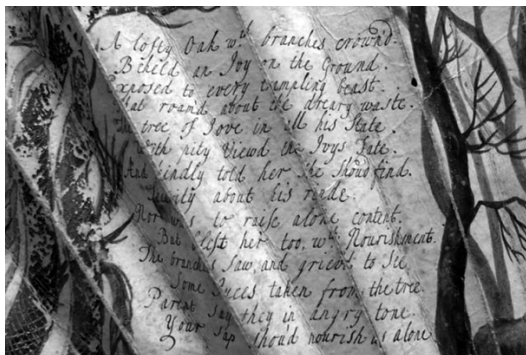 A lofty Oak wth branches crown'd.
Beheld an Ivy on the Ground.
Exposed to every trampling beast.
that roam'd about the dreary waste.
The tree of Jove in all his State.
With pity Viewd the Ivys Fate.
And kindly told her She shoud find.
about his rinde
Nor was to raise alone content.
But blest her too, wth Nourishment.
The branches Saw, and griev'd to See
Some Juces taken from the tree
Parent Say they in angry tone.
Your Sap shou'd nourish us alone